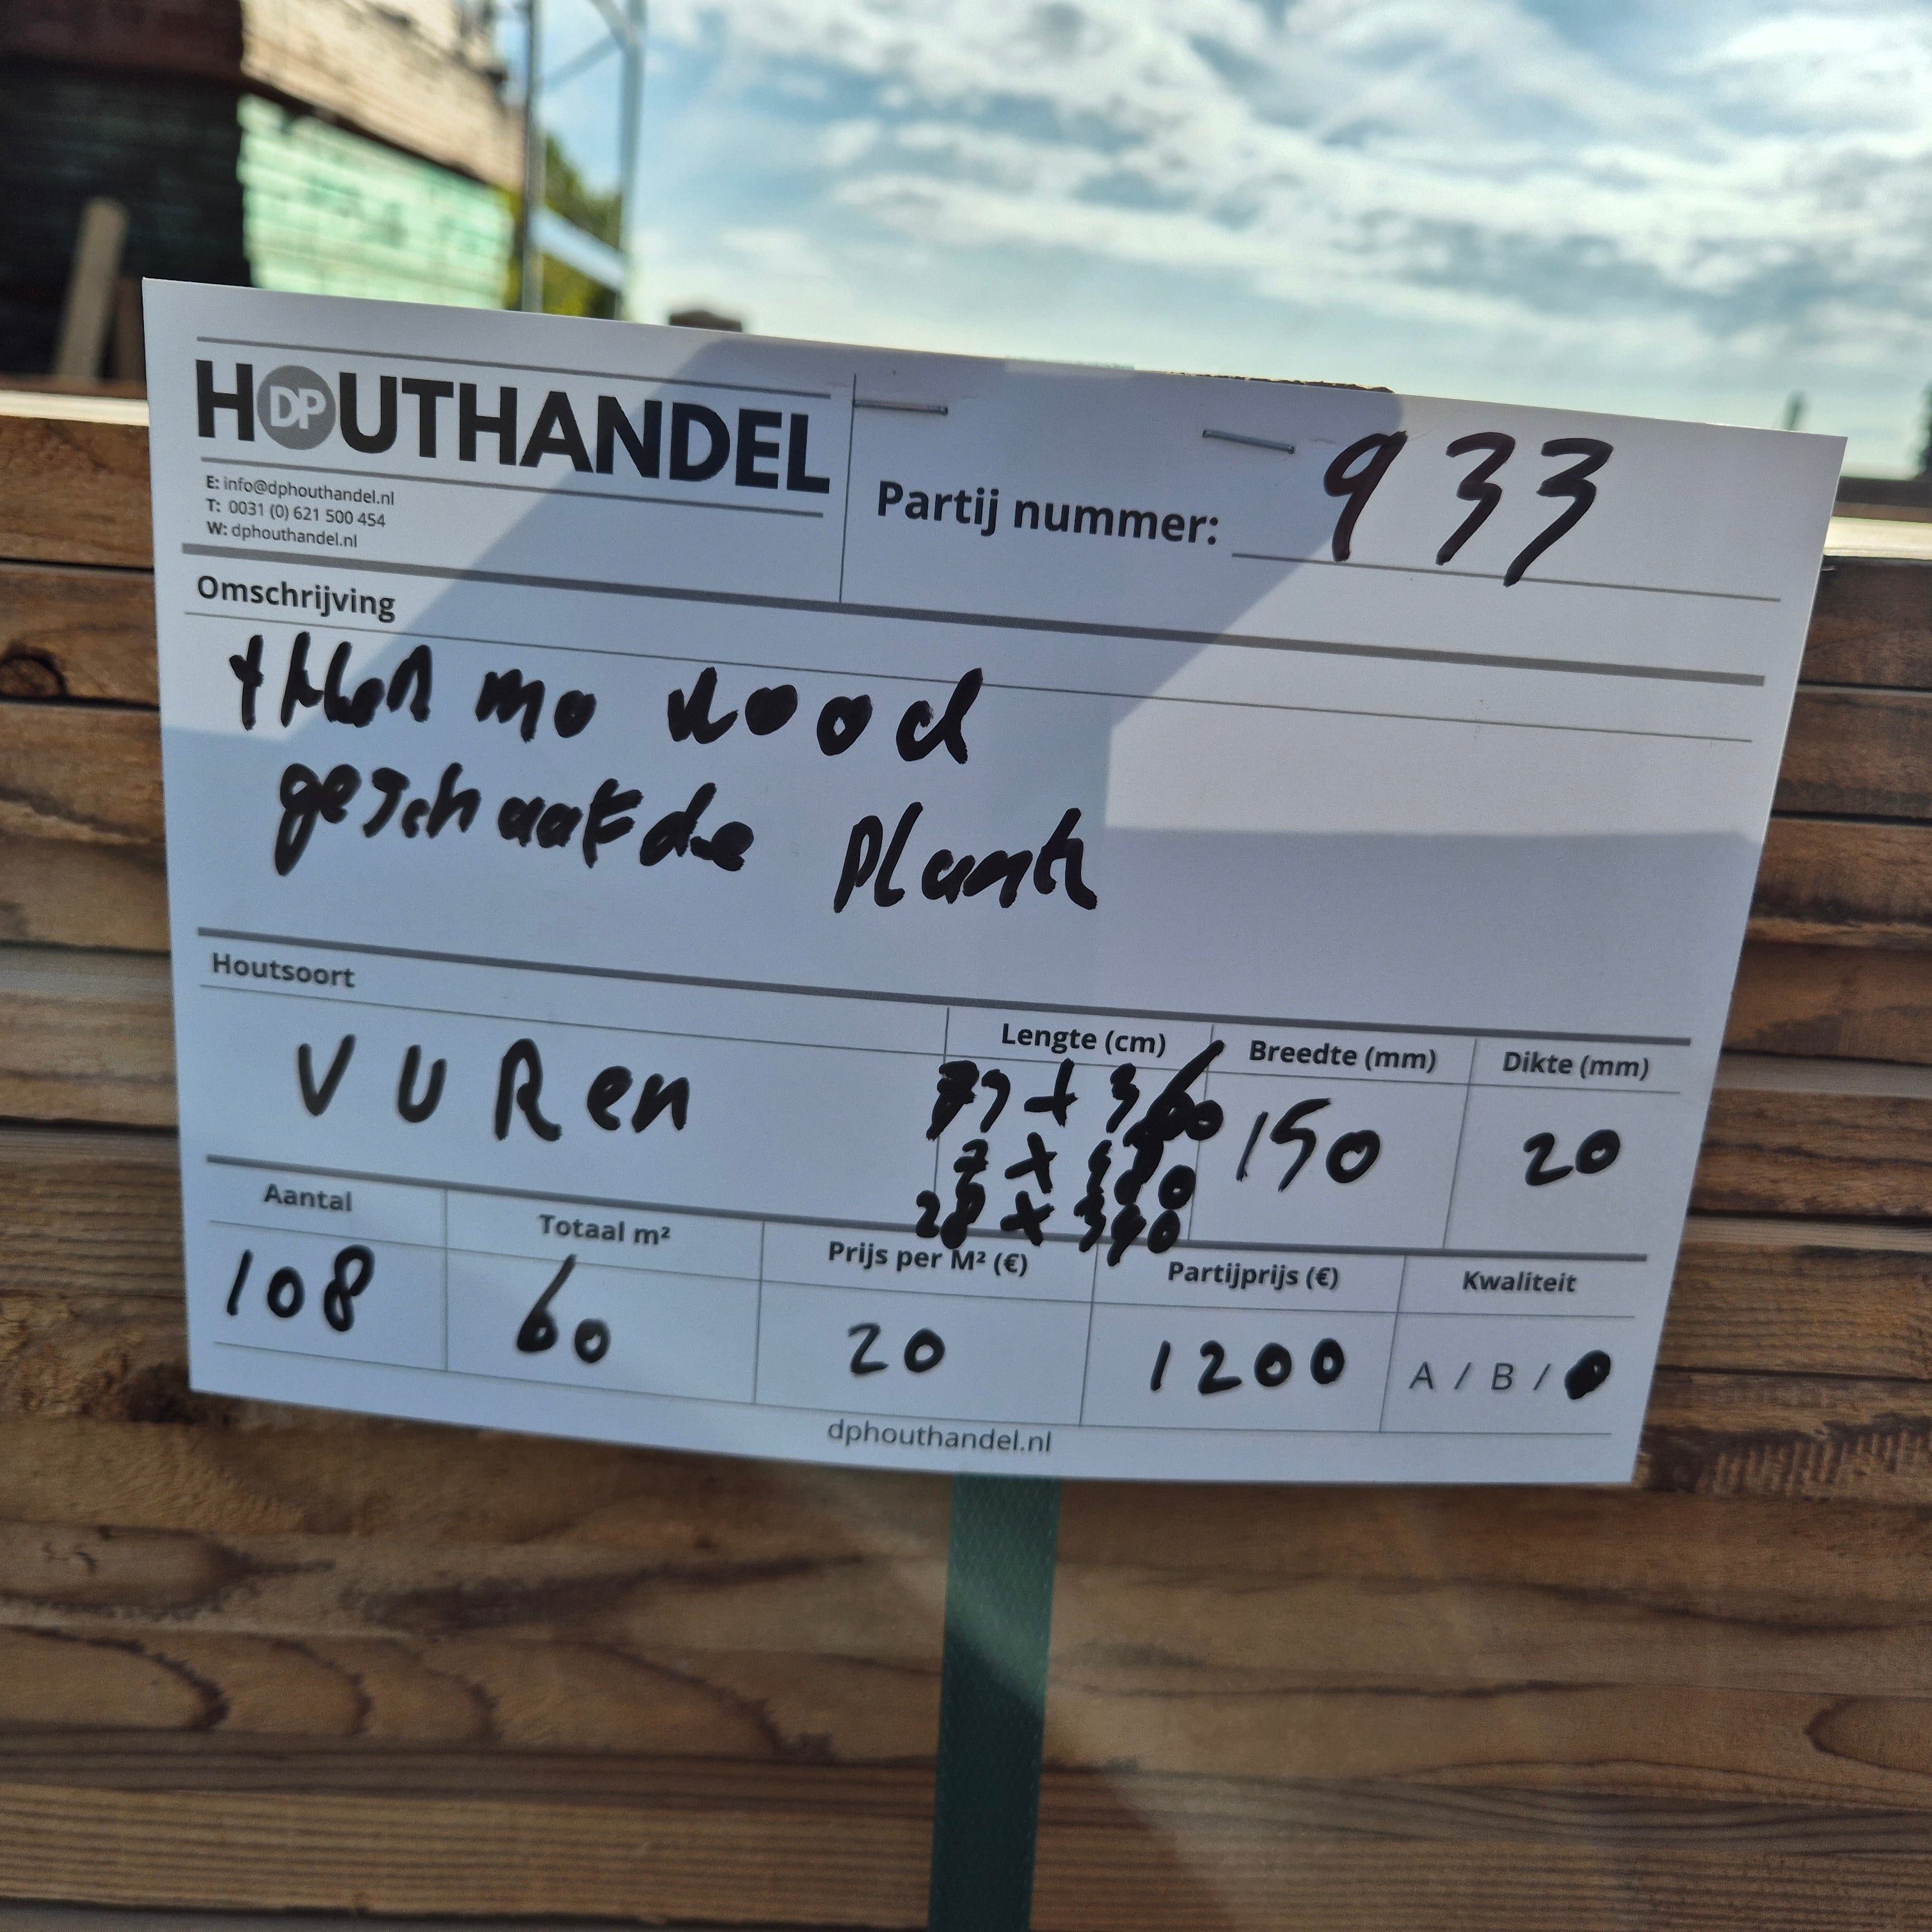 HOUTHANDEL
DP
E: info@dphouthandel.nl
T: 0031 (0) 621 500 454
W: dphouthandel.nl
Partij nummer: 933
Omschrijving
mo wood
geschaafde Plank
Houtsoort
VURen
Lengte (cm)
Breedte (mm)
Dikte (mm)
x 360
7 x
28 x 390
150
20
Aantal
Totaal m²
Prijs per M² (€)
Partijprijs (€)
Kwaliteit
108
60
20
1200
A / B /
dphouthandel.nl